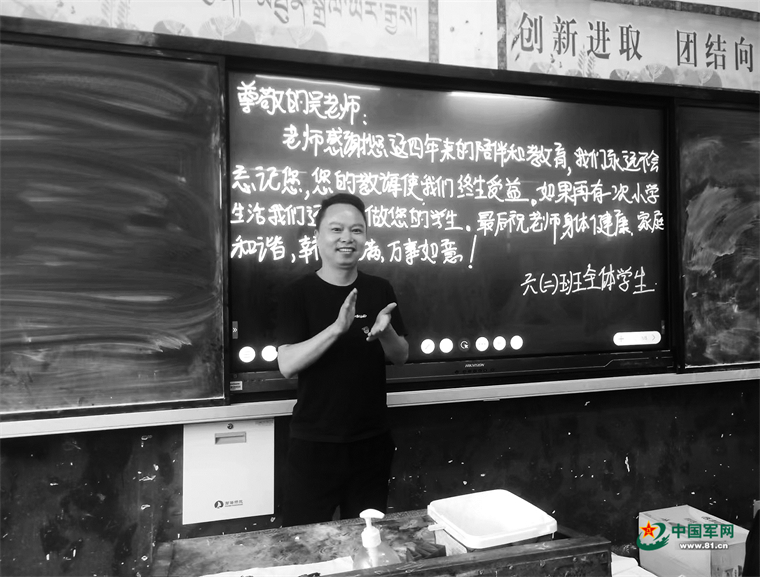 创新进取 团结向
尊敬的吴老师:
老师感谢您这四年来的陪伴和教育,我们永远不会
忘记您,您的教诲使我们终生受益。如果再有一次小学
生活我们还 做您的学生。最后祝老师身体健康、家庭
和谐, 满,万事如意!
六(二)班全体学生.
HIKVISION
中国军网
www.81.cn